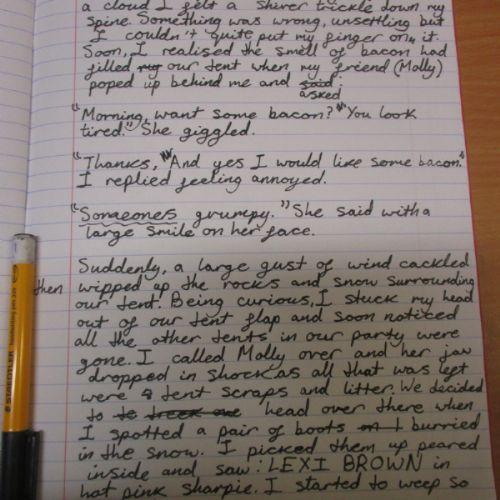 a cloud I felt a shiver trickle down my
spine. Something was wrong, unsettling but
I couldn't quite put my finger on it.
Soon, I realised the smell of bacon had
filled my our tent when my friend (Molly)
poped up behind me and said
asked
"Morning, want some bacon?" "You look
tired." She giggled.
"Thanks," "And yes I would like some bacon."
I replied feeling annoyed.
"Someones grumpy." She said with a
large smile on her face.
Suddenly, a large gust of wind cackled
then wipped up the rocks and snow surrounding
our tent. Being curious, I stuck my head
out of our tent flap and soon noticed
all the other tents in our party were
gone. I called Molly over and her jaw
dropped in shock as all that was left
were tent scraps and litter. We decided
to head over there when
I spotted a pair of boots burried
in the snow. I picked them up peared
inside and saw: LEXI BROWN in
hot pink sharpie. I started to weep so
STAEDTLER